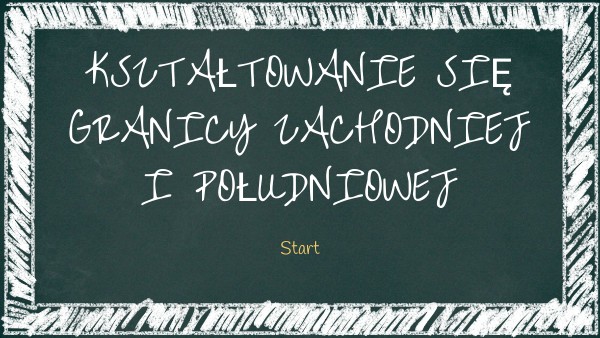 KSZTAŁTOWANIE SIĘ
GRANICY ZACHODNIEJ
I POŁUDNIOWEJ
Start